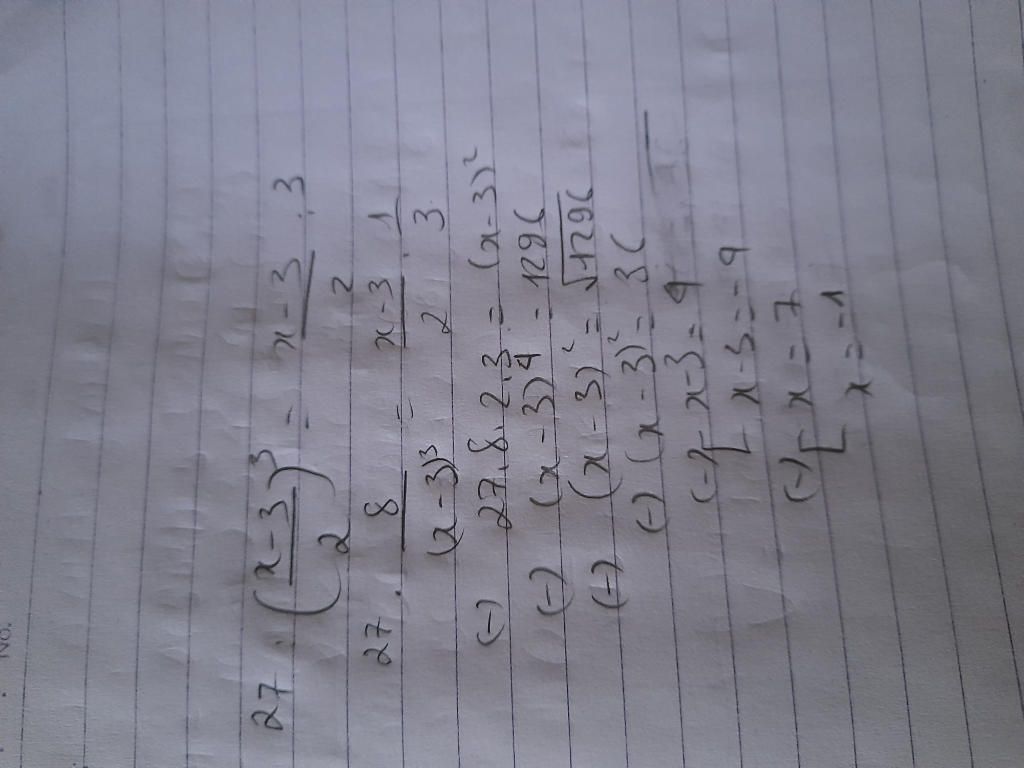 No.
27 : (x-3/2)³ = x-3/2 : 3
27 . 8/(x-3)³ = x-3/2 . 1/3
(-) 27.8.2.3 = (x-3)²
(-) (x-3)⁴ = 1296
(-) (x-3)² = √1296
(-) (x-3)² = 36
(-) [ x-3 = 4
[ x-3 = -4
(-) [ x = 7
[ x = -1